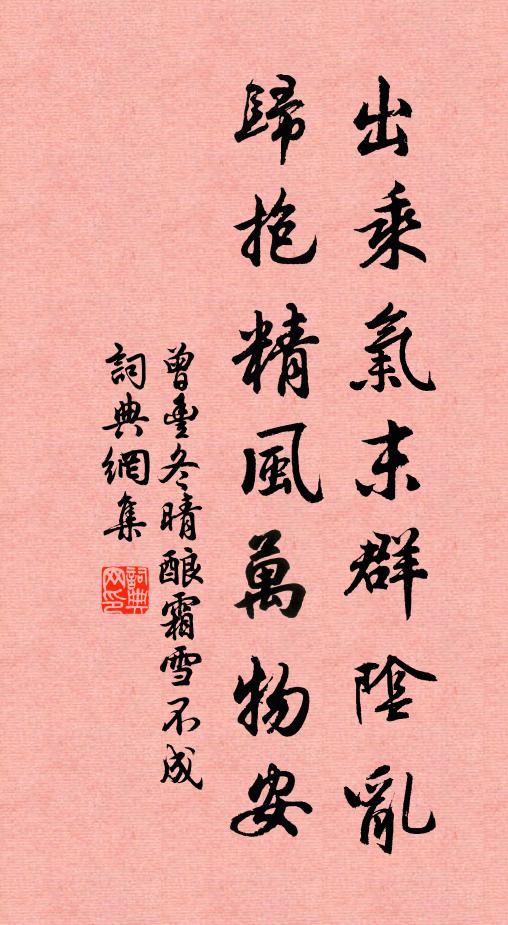 出乘氣末群陰亂
歸抱精風萬物安
曾豐冬晴酿霜雪不成
詞典網集
詞典网印